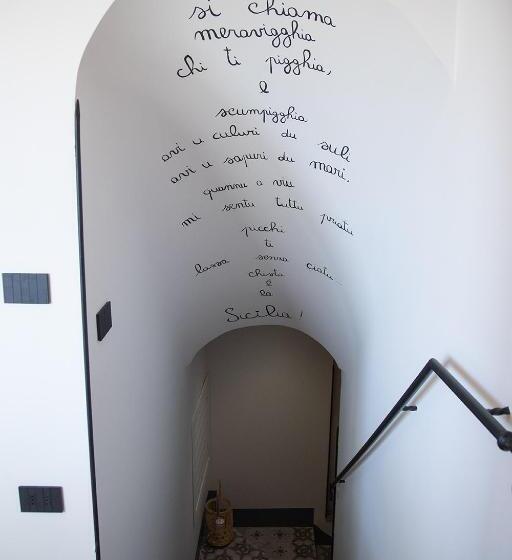 si chiama
meravigghia
chi ti pigghia,
e
scumpigghia
avi u culuri du suli
avi u sapuri du mari.
quannu a viu
mi sentu tuttu priatu
picchì
ti
lassa senza ciatu..
chista
è
la
Sicilia!